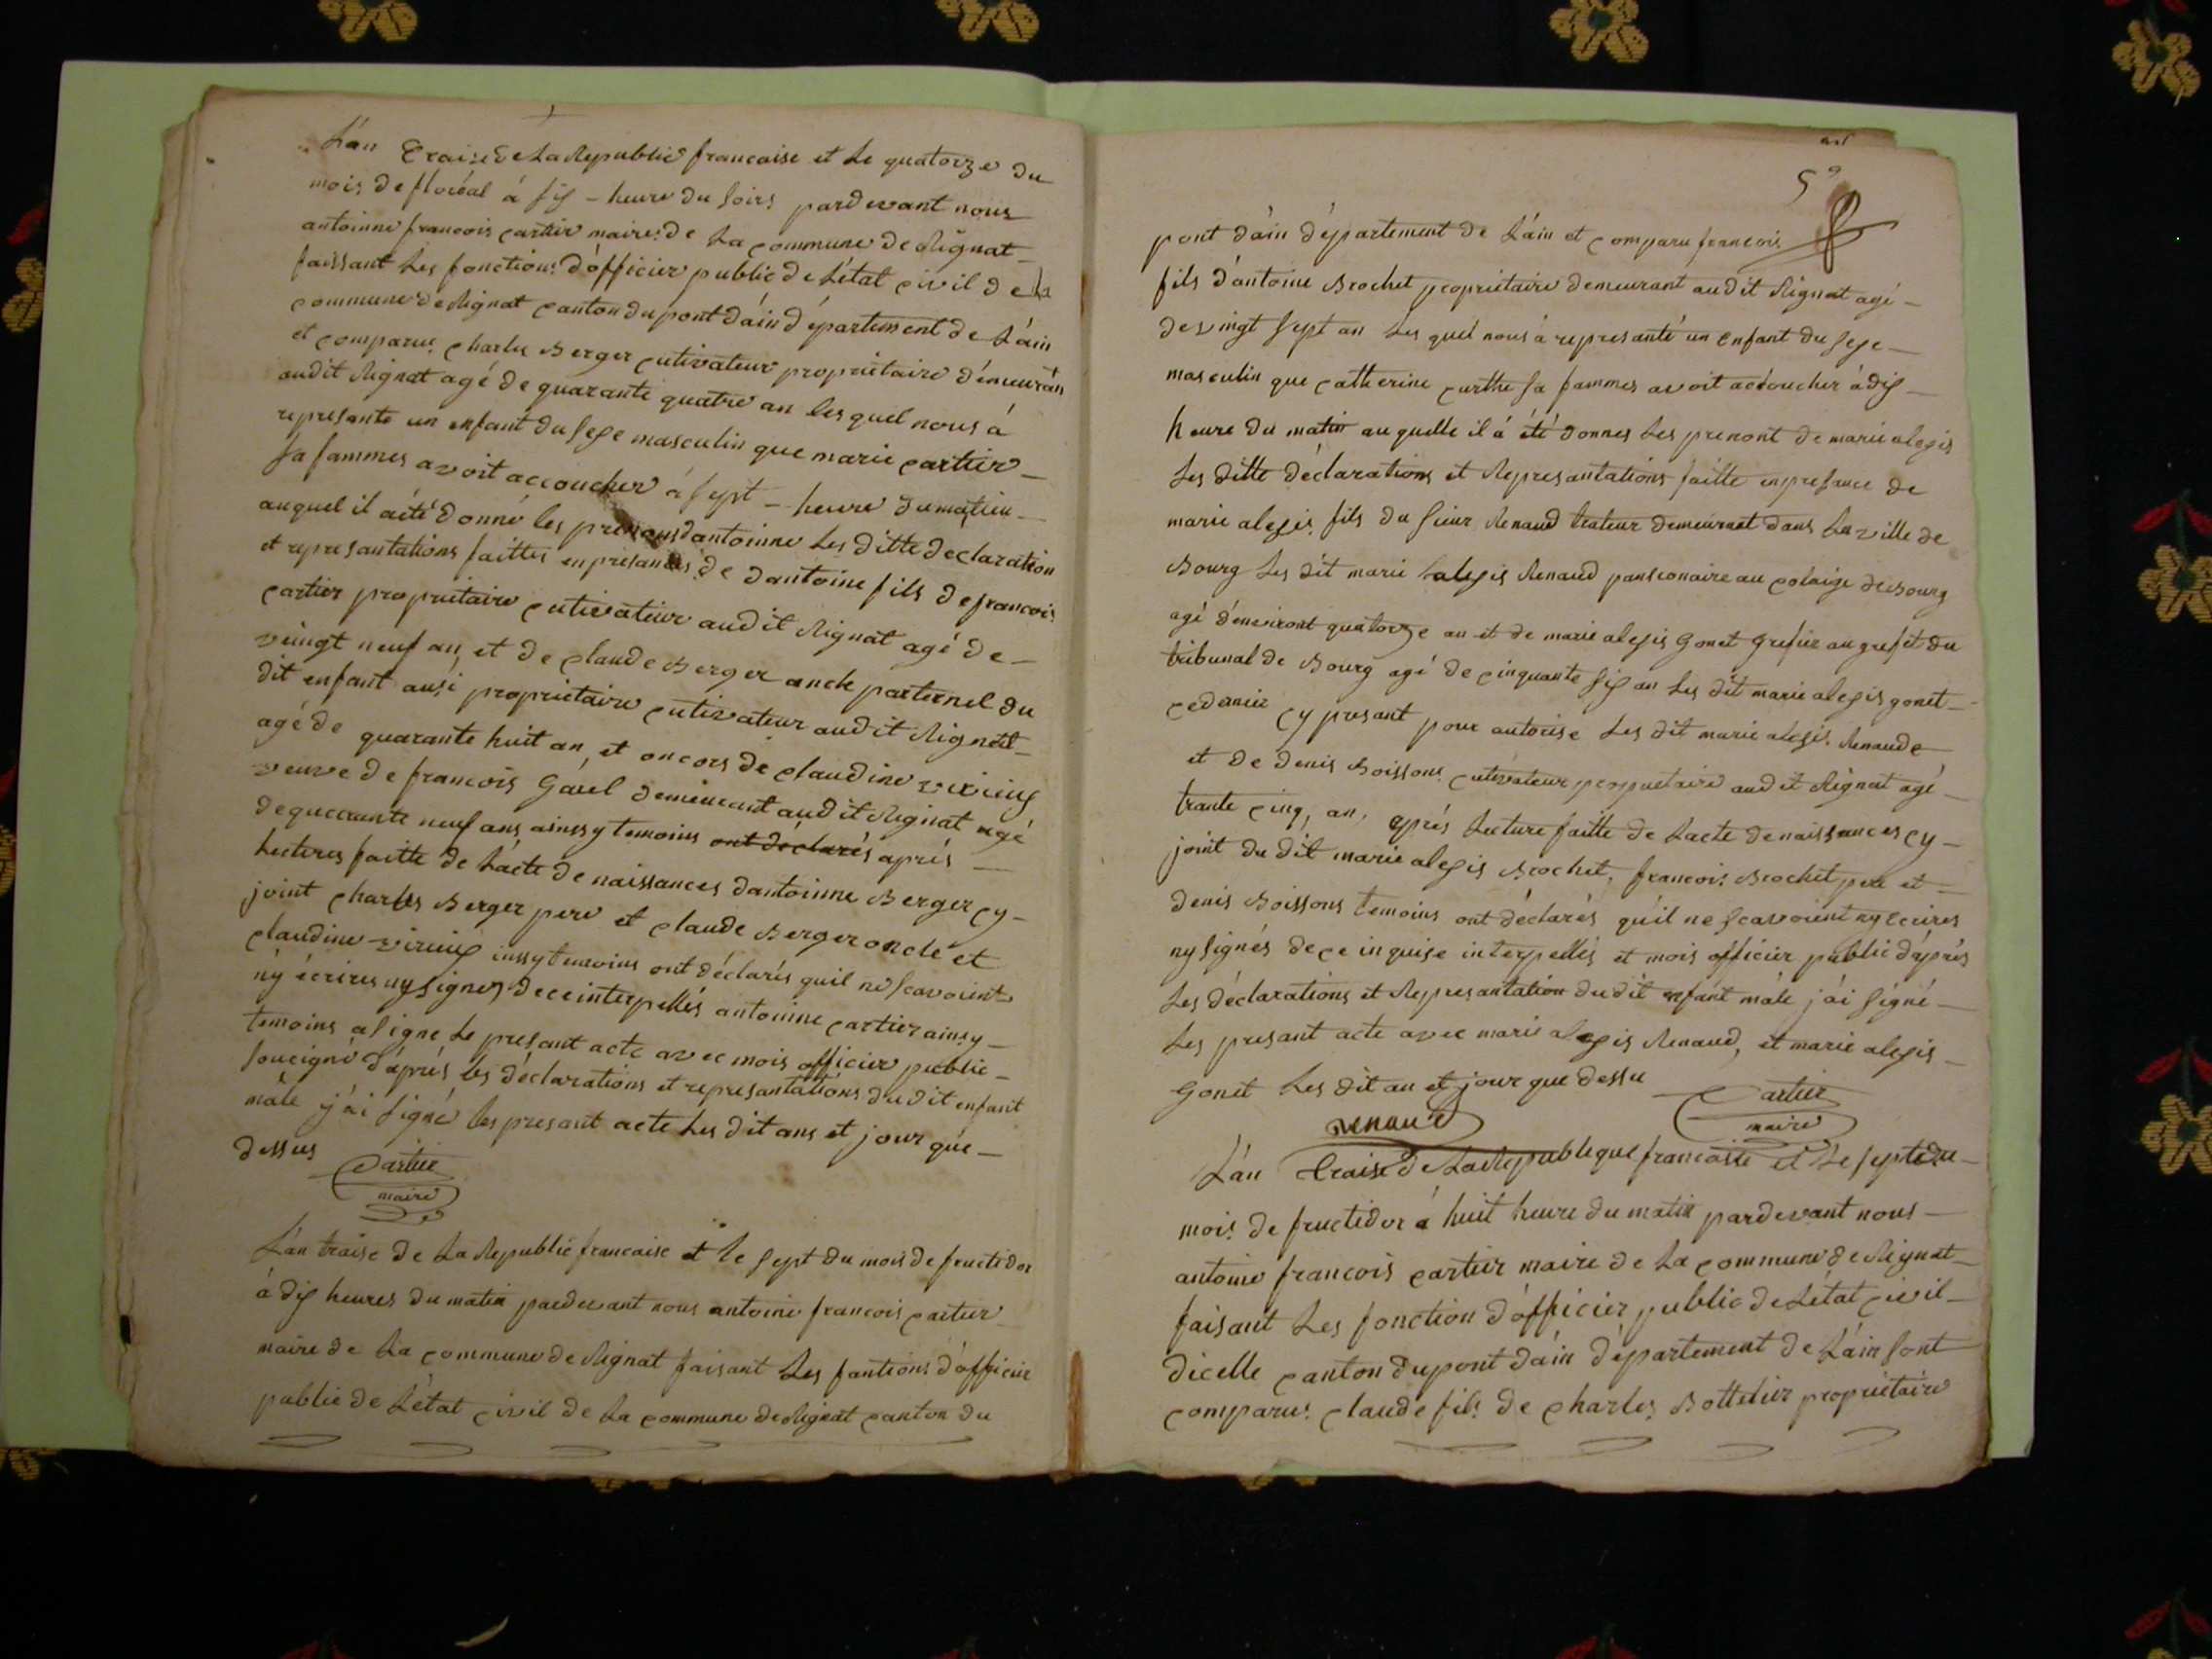 L'an traise de La Republic francaise et le quatorze du
mois de floréal á six - heure du soirs pardevant nous
antoinne francois cartier maire de La commune de Rignat -
faissant Les fonctions d'officier public de L'état civil de la
commune de Rignat canton du pont dáin département de L'áin
et comparus charles Berger cutivateur propriétaire démeuran
audit Rignat agé de quarante quatre an les quel nous á
represente un enfant du sexe masculin que marie cartier -
sa fammes avoit accoucher á sept - heure du matin -
auquel il a été donné les prenoms dantoinne Les ditte declaration
et represantations faittes en presances de dantoine fils de francois
cartier propriétaire cutivateur audit Rignat agé de -
vuingt neuf an et de claude Berger oncle paternel du
dit enfant ausi propriétaire cutivateur audit Rignat -
agé de quarante huit an, et oncors de claudine virieux
veuve de francois Gavel demeurant audit Rignat agé
de quarante neuf ans ainssy temoins ont déclarés aprés -
lectures faitte de L'acte de naissances dantoinne Berger cy -
joint charles Berger pere et claude Berger oncle et
claudine virieux inssy temoins ont déclarés quil ne scavoient
ny écrires ny signes de ce interpellés antoinne cartier ainsy -
temoins a signe Le presant acte avec mois officier public -
soucigné d'áprés les déclarations et represantations du dit enfant
mâle j'ái signé les presant acte Les dit ans et jour que -
dessus
Cartier
maire
L'án traise de La Republic francaise et le sept du mois de fructidor
á dix heures du matin pardevant nous antoine francois cartier
maire de La commune de Rignat faisant Les fontions d'officier
public de L'état civil de La commune de Rignat canton du
5
pont dáin département de L'áin et comparu francois
fils d'antoine Brochet propriétaire demeurant audit Rignat agé -
de vingt sept an Les quel nous á represanté un enfant du sexe -
masculin que catherine curthe sa fammes avoit accoucher á dix -
heure du matin auquelle il á été donnes Les prenont de marie alexis
Les ditte déclarations et Represantations faitte en presance de
marie alexis fils du sieur Renaud traiteur demeurant dans La ville de
Bourg Les dit marie alexis Renaud pansionaire au colaige de Bourg
agé d'environt quatorze an et de marie alexis Gonet Grefier au grefet du
tribunal de Bourg agé de cinquante six an Les dit marie alexis gonet -
cy presant pour autorise Les dit marie alexis Renaude
et de denis Boissons cutivateur propriétaire audit Rignat agé -
trante cinq, an, aprés Lecture faitte de Lacte de naissances cy -
joint du dit marie alexis Brochet, francois Brochet pere et -
denis Boissons temoins ont déclarés qu'il ne scavoient ny ecrires
ny signés de ce inquise interpellés et mois officier public d'áprés
Les déclarations et Represantation du dit enfant mâle j'ái signé -
Les presant acte avec marie alexis Renaud, et marie alexis -
Gonet Les dit an et jour que dessu
Renaud
Cartier
maire
L'án traise de La Republique francaise et Le sept du -
mois de fructidor á huit heure du matin pardevant nous -
antoine francois cartier maire de La commune de Rignat -
faisant Les fonction d'officier public de L'état civil -
dicelle canton du pont dáin département de L'áin sont
comparus claude fils de charles Bottelier propriétaire